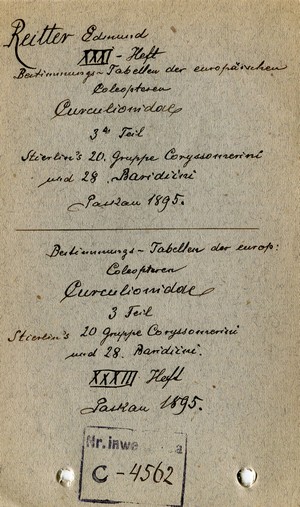 Reitter Edmund
XXXI - Heft
Bestimmungs-Tabellen der europäischen
Coleopteren
Curculionidae
3ter Teil
Stierlin's 20. Gruppe Coryssomerini
und 28. Baridiini
Paskau 1895.
Bestimmungs-Tabellen der europ:
Coleopteren
Curculionidae
3 Teil
Stierlin's 20 Gruppe Coryssomerini
und 28. Baridiini.
XXXIII Heft
Paskau 1895.
Nr.
C-4562